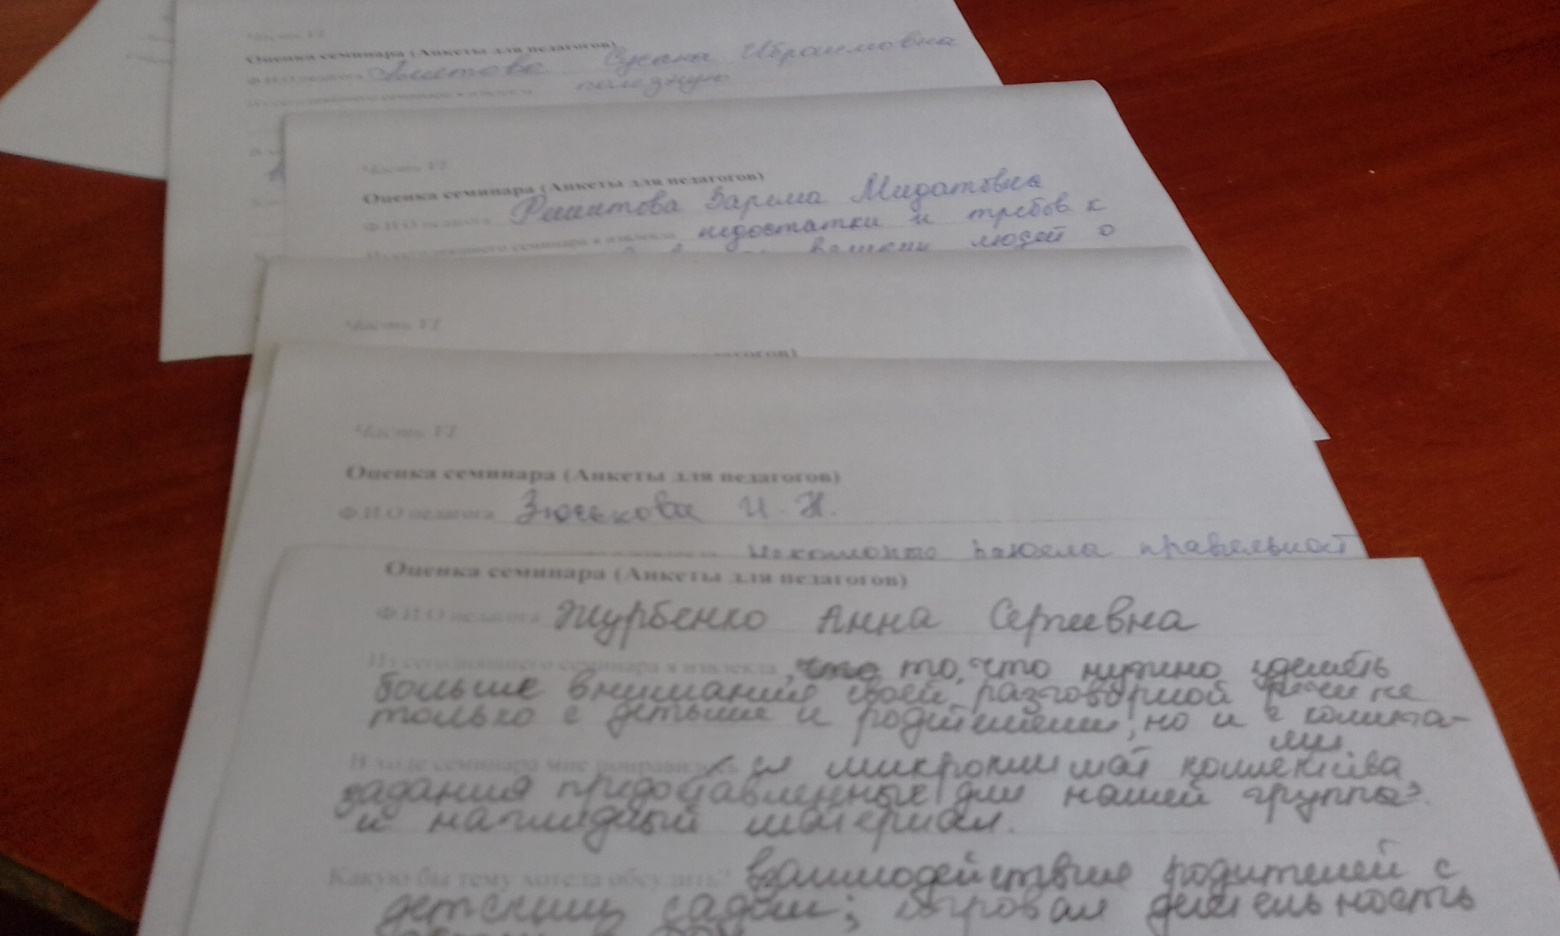 Часть VI
Оценка семинара (Анкеты для педагогов)
Ф.И.О педагога Сусана Ибраимовна
Из сегодняшнего семинара я извлекла полезную
Часть VI
Оценка семинара (Анкеты для педагогов)
Ф.И.О педагога Решитова Зарема Мидатовна
Из сегодняшнего семинара я извлекла недостатки и требов к
людей о
Часть VI
Часть VI
Оценка семинара (Анкеты для педагогов)
Ф.И.О педагога Зюськова И. Н.
Оценка семинара (Анкеты для педагогов)
Ф.И.О педагога Журбенко Анна Сергеевна
Из сегодняшнего семинара я извлекла, то, что нужно уделять
больше внимания своей разговорной речи не
только с детьми и родителями, но и с коллега-
ми.
В ходе семинара мне понравилось и микроклимат коллектива,
задания предоставленные для нашей группы
и наглядный материал.
Какую бы тему хотела обсудить? взаимодействие родителей с
детским садом; игровая деятельность